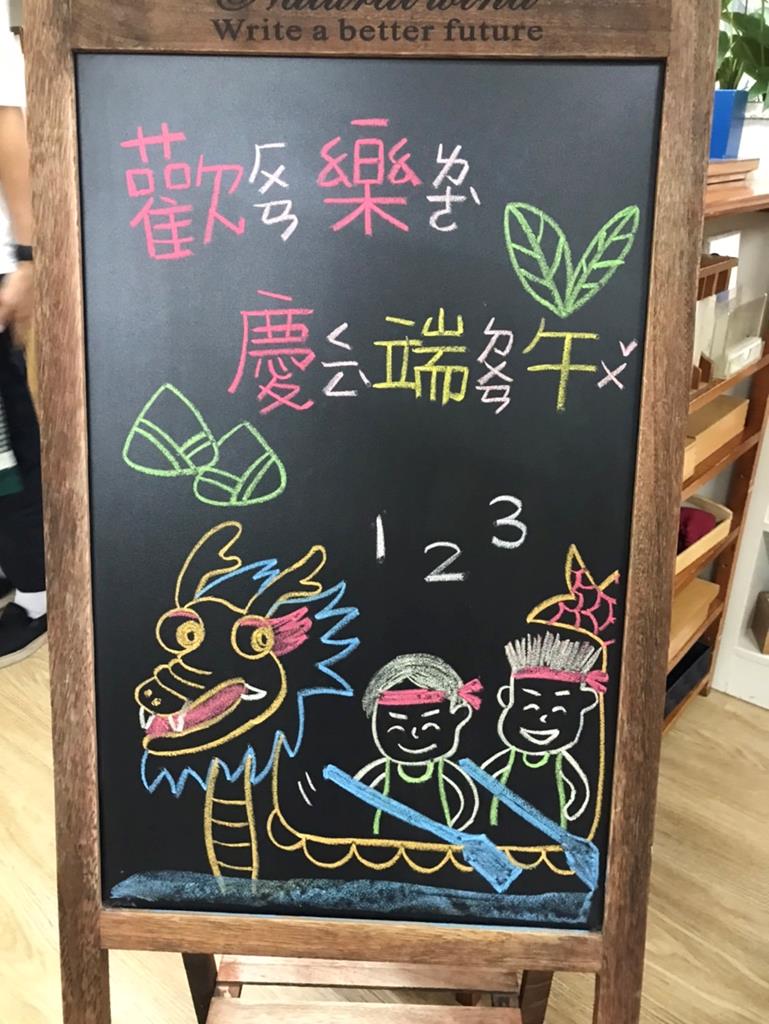 Natural wind
Write a better future
歡ㄏㄨㄢ樂ㄌㄜˋ
慶ㄑㄧㄥˋ端ㄉㄨㄢ午ㄨˇ
1 2 3